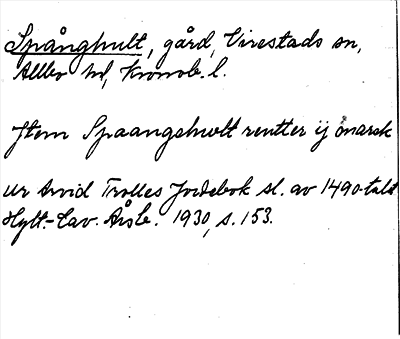 Spånghult, gård, Virestads sn,
Allbo hd, Kronob. l.
Jtem Spaangehwlt rentter ij marsk
ur Arvid Trolles Jordebok sl. av 1490-talet
Hylt.-Cav. Årsb. 1930, s. 153.